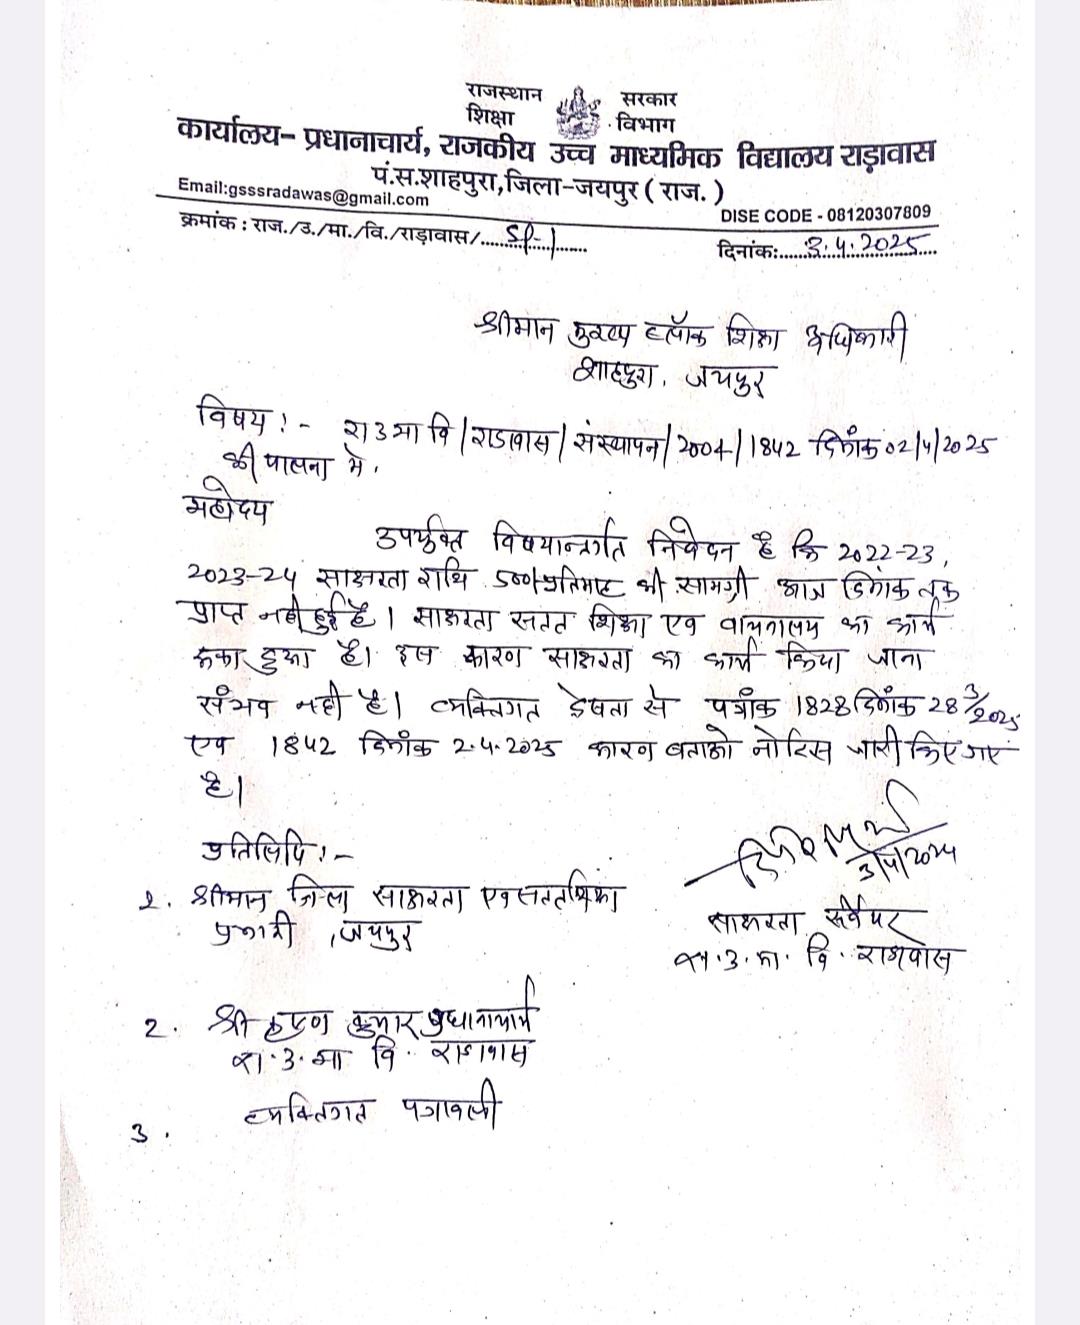 राजस्थान सरकार
शिक्षा विभाग
कार्यालय- प्रधानाचार्य, राजकीय उच्च माध्यमिक विद्यालय राड़ावास
पं.स.शाहपुरा,जिला-जयपुर ( राज. )
Email:gsssradawas@gmail.com
DISE CODE - 08120307809
क्रमांक : राज./उ./मा./वि./राड़ावास/.....SP-1......
दिनांक:......3.4.2025....
श्रीमान मुख्य ब्लॉक शिक्षा अधिकारी
शाहपुरा, जयपुर
विषय :- रा उ मा वि/राडावास/संस्थापन/2004/1842 दिनाँक 02/4/2025
की पालना मे.
महोदय
उपर्युक्त विषयान्तर्गत निवेदन है कि 2022-23,
2023-24 साक्षरता राशि 500 प्रतिमाह की सामग्री आज दिनांक तक
प्राप्त नही हुई है। साक्षरता सतत शिक्षा एव वाचनालय का कार्य
रूका हुआ है। इस कारण साक्षरता का कार्य किया जाना
संभव नही है। व्यक्तिगत द्वेषता से पत्राँक 1828 दिनाँक 28 3/2025
एव 1842 दिनाँक 2.4.2025 कारण बताओ नोटिस जारी किए गए
है।
प्रतिलिपि :-
3/4/2024
1. श्रीमान जिला साक्षरता एव सतत शिक्षा
साक्षरता
प्रभारी , जयपुर
रा.उ.मा. वि. राडावास
2. श्री कुमार प्रधानाचार्य
रा.उ.मा वि. राडावास
3. व्यक्तिगत पत्रावली